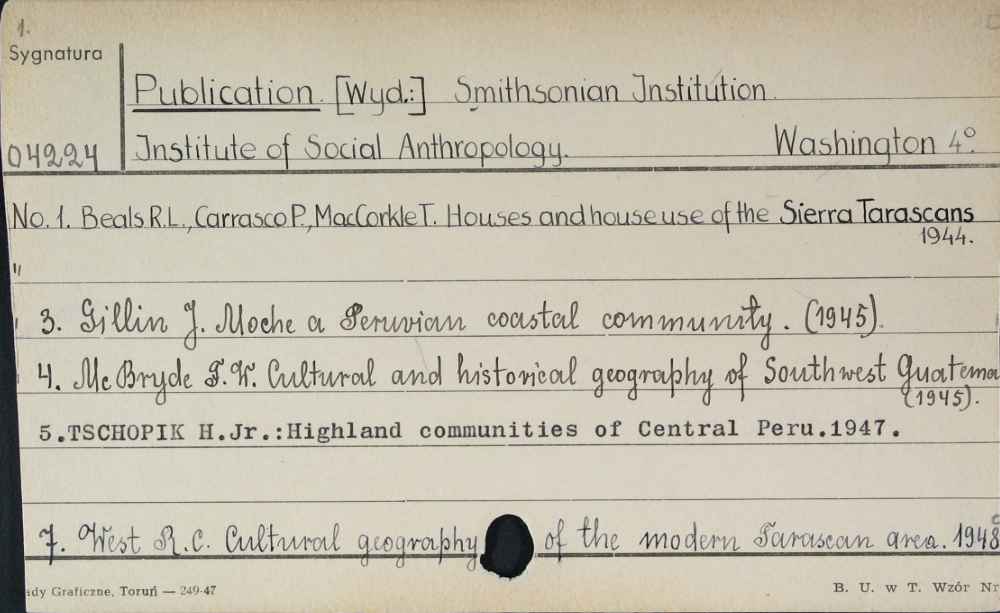 1.
Sygnatura
Publication. [Wyd.:] Smithsonian Institution.
04224 Institute of Social Anthropology. Washington 4°.
No. 1. Beals R.L., Carrasco P., MacCorkle T. Houses and house use of the Sierra Tarascans
1944.
"
3. Gillin J. Moche a Peruvian coastal community. (1945).
4. Mc Bryde F.W. Cultural and historical geography of Southwest Guatema
(1945).
5.TSCHOPIK H.Jr.:Highland communities of Central Peru.1947.
7. West R.C. Cultural geography of the modern Tarascan area. 1948
ady Graficzne, Toruń — 249-47 B. U. w T. Wzór Nr